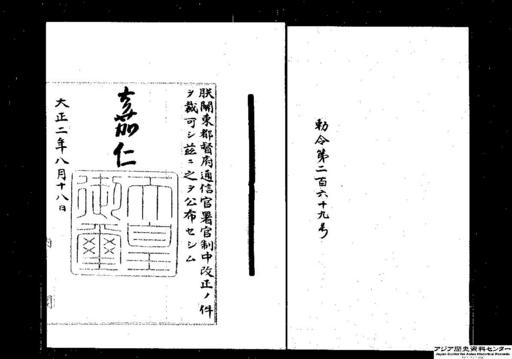 勅令第二百六十九号
朕關東都督府通信官署官制中改正ノ件
ヲ裁可シ茲ニ之ヲ公布セシム
嘉仁
天皇
御璽
大正二年八月十八日
アジア歴史資料センター
Japan Center for Asian Historical Records